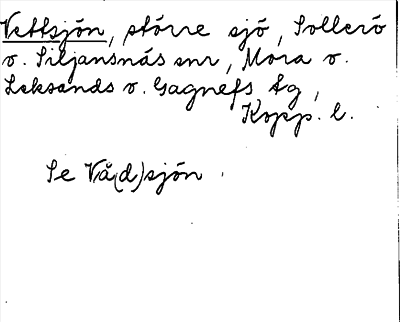 Vettsjön, större sjö, Sollerö
o. Siljansnäs snr, Mora o.
Leksands o. Gagnefs tg,
Kopp. l.
Se Vå(d)sjön